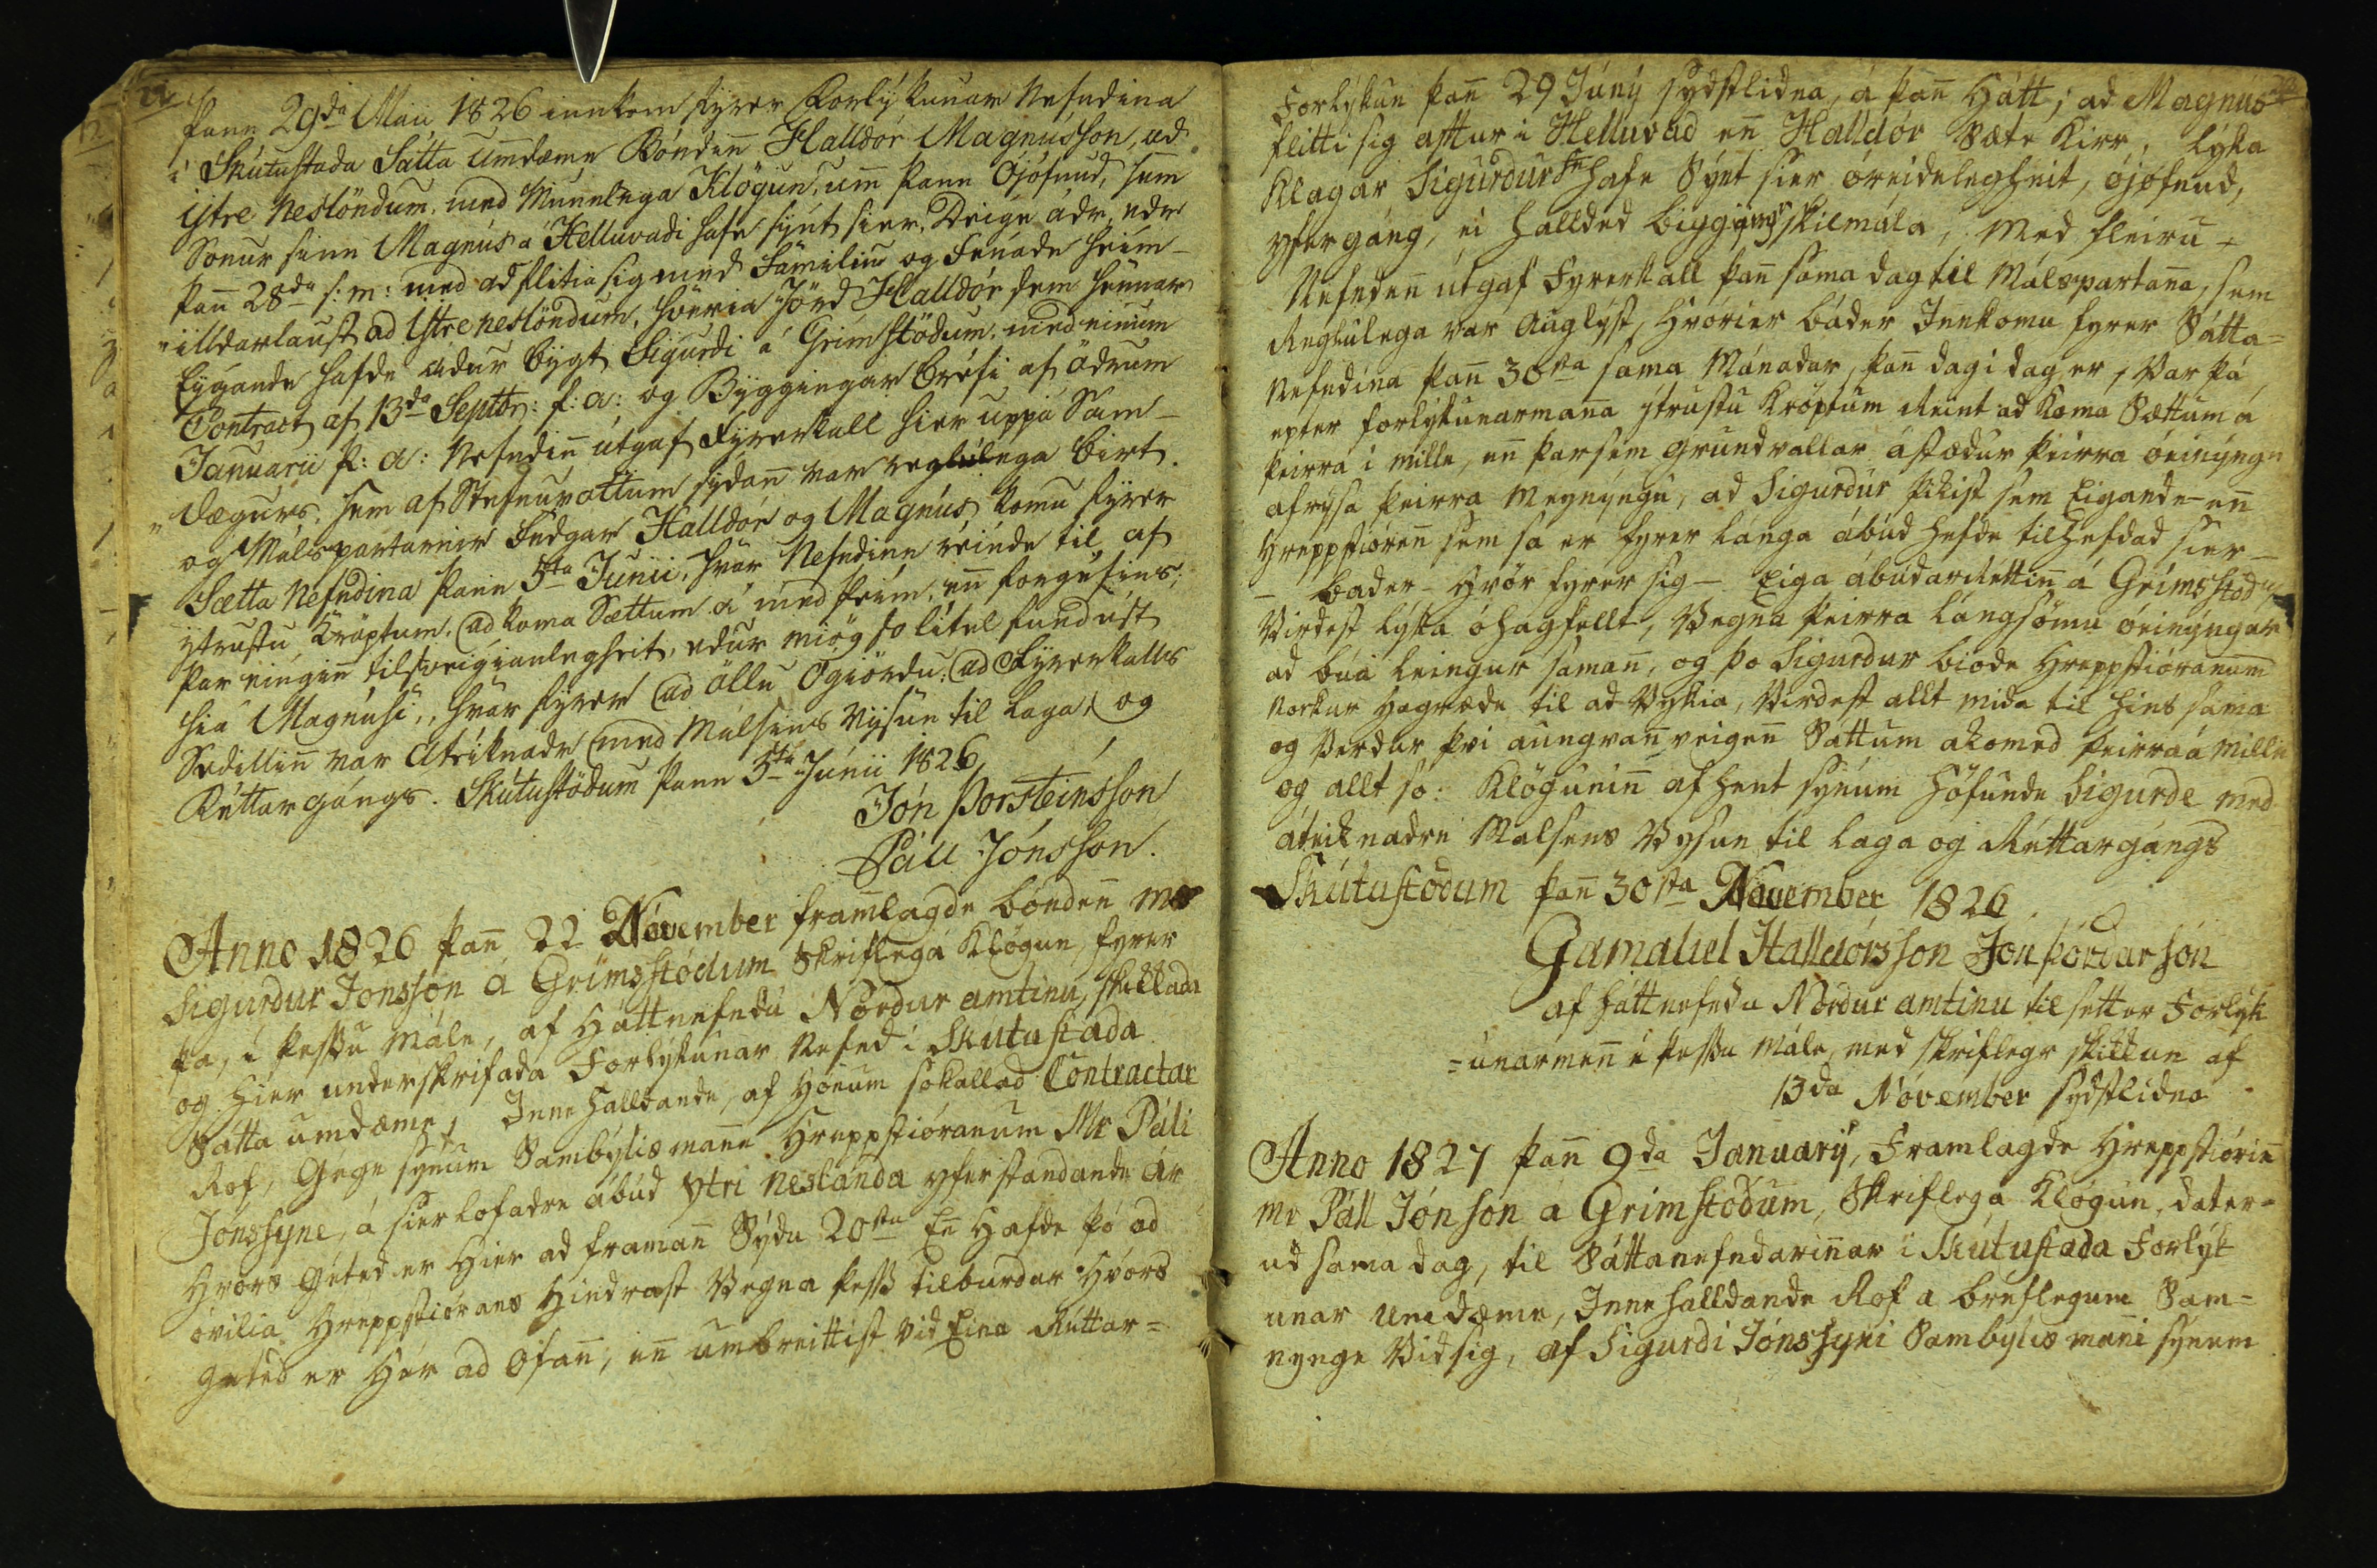 22
þann 29da Maii 1826 innkom fyrer Forlýkunar Nefndina
i Skútustada Sátta Umdæme Bóndin̄ Halldór Magnússon, ad
Ytre Neslöndum, med Munnlega Klögun, um þann Ójöfnud, sem
Sonur sinn Magnús á Helluvadi hafe sýnt sier, Deigi ádr, edr
þan̄ 28da s: m: med ad flitia sig med Familiu og Fénade heim-
"illdarlaust ad Ytre neslöndum, hvöria Jörd Halldór sem hennar
Eÿgande hafde ádur bÿgt Sigurdi á Grímstödum, med einum
Contract af 13da Septbr: f: a: og Bÿggingar bréfi af ödrum
Januarii þ: a: Nefndin̄ útgaf Fÿrerkall hier uppá Sam-
"dægurs, sem af Stefnuvottum sÿdan̄ var reglulega birt.
og Málspartarnir Fedgar Halldór og Magnús komu fÿrer
Sætta Nefndina þann 5ta Junii, hvar Nefndinn reinde til af
ÿtrustu Kröptum, ad koma Sættum á med þeim, en̄ forgefins;
þar eingin̄ tilhneigianlegheit, edur miög so lítel fundust
hiá Magnúsi, hvar fÿrer ad öllu Ógiördu, ad Fÿrerkalls
Sedillin̄ var Atekknadr med Málsins Vÿsun til Laga, og
Réttargángs. Skútustödum þann 5ta Júnii 1826
Jón Þorsteinsson
Páll Jónsson.
Anno 1826 þan̄ 22 November framlagde bónden̄ Mr
Sigurdur Jonsson á Grímsstödum Skriflega Klögun, fyrer
þa, i þessu Mále, af Háttnefndu Nordur amtinu, skickada
og hier underskrifada Forlýkunar Nefnd i Skútustada
Sátta umdæme, Innehalldande, af Hönum sokallad Contractar
Rof, Gegn sÿnum Sambýlismanne Hreppstióranum Mr Páli
Jónssyne, á sier lofadre ábúd Ytri Neslanda yferstandande ár
Hvörs Geted er Hier ad framan̄ Sýdu 20sta En̄ Hafde þó ad
óvilia Hreppstiórans Hindrast Vegna þess tilburdar Hvörs
Geted er Hér ad Ofan̄, en̄ umbreittist vid Eina Réttar=
Forlýkun þan̄ 29 Júný sydstlidna, á þan̄ Hátt; ad Magnús
flitti sig aftur i Helluvad en̄ Halldór Sæte Kirr, lýka
Klagar Sigurdur Hafe Sýnt sier óreidelegheit, ójöfnud,
yfergáng, ei Halldid biggingar skilmála, Med fleiru
Nefnden̄ útgaf Fyrerkall þan̄ sama dag til Málspartan̄a, sem
Reglulega var Auglýst, Hvörier báder Innkomu fyrer Sátta=
Nefndina þan̄ 30sta sama Mánadar, þan̄ dag i dag er, Var þá
epter forlýkunarman̄a ýtrustu Kröptum Reint ad koma Sættum á
þeirra i mille, en̄ þarsem grundvallar ástædur þeirra óeinÿngu
afrýsa þeirra Meyningu, ad Sigurdur þikist sem Eigande en̄
Hreppstióren̄ sem sá er fyrer langa ábúd hefde tilhefdad sier-
- bader - Hvör fyrer sig - Eiga ábúdarRéttin̄ á Grímsstödum
Virdest lýka óhagfellt, Vegna þeirra lángsömu óeinÿngar
ad búa leingur saman̄, og þo Sigurdur biode Hreppstióranum
Nockur Hagræde til ad Vykia, Virdest allt mida til hins sama
og Verdur þvi aungvan̄veigen̄ Sáttum ákomed þeirra á Mille
og allt so: Klögunin̄ afhent sÿnum Höfunde Sigurde med
áteiknadre Malsens Vÿsun til laga og Réttargángs
Skútustödum þan̄ 30sta November 1826
Gamaliel Halldórsson Jon þórdarson
af háttnefndu Nordur amtinu til settar Forlýk
=unarmen̄ i þessu Mále, med skriflegre skickun af
13da November sýdstlidna
Anno 1827 þan̄ 9da January, Framlagde Hreppstiórin̄
Mr Páll Jónson á Grímstödum, Skriflega Klögun, dater=
ud sama dag, til Sáttanefndarin̄ar i Skútustada Forlýk
unar Umdæme, Innehalldande Rof á breflegum Sam=
nynge Vid sig, af Sigurdi Jónssyni Sambýlis man̄i sÿnum